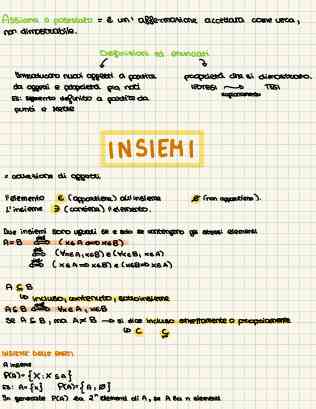 Assioma o postulato = è un' affermazione accettata come vera,
non dimostrabile.
Definizioni ed enunciati
Introducono nuovi oggetti a partire
da oggetti e proprietà già noti
ES: segmento definito a partire da
punti e rette
proprietà che si dimostrano.
IPOTESI → TESI
ragionamento
INSIEMI
= collezione di oggetti.
l'elemento ∈ (appartiene) all'insieme ∉ (non appartiene).
L'insieme ∋ (contiene) l'elemento.
Due insiemi sono uguali se e solo se contengono gli stessi elementi
A=B ⟺ (x∈A ⟺ x∈B)
⟺ (∀x∈A, x∈B) e (∀x∈B, x∈A)
⟺ (x∈A ⟹ x∈B) e (x∈B ⟹ x∈A)
A ⊆ B
↳ incluso, contenuto, sottoinsieme
A⊆B ⟺ ∀x∈A, x∈B
Se A⊆B, ma A≠B → si dice incluso strettamente o propriamente
↳ ⊂ ⊊
INSIEME DELLE PARTI
A insieme
P(A)= {X : X ⊆ A}
ES: A={x} P(A)= {A, ∅}
In generale P(A) ha 2ⁿ elementi di A, se A ha n elementi